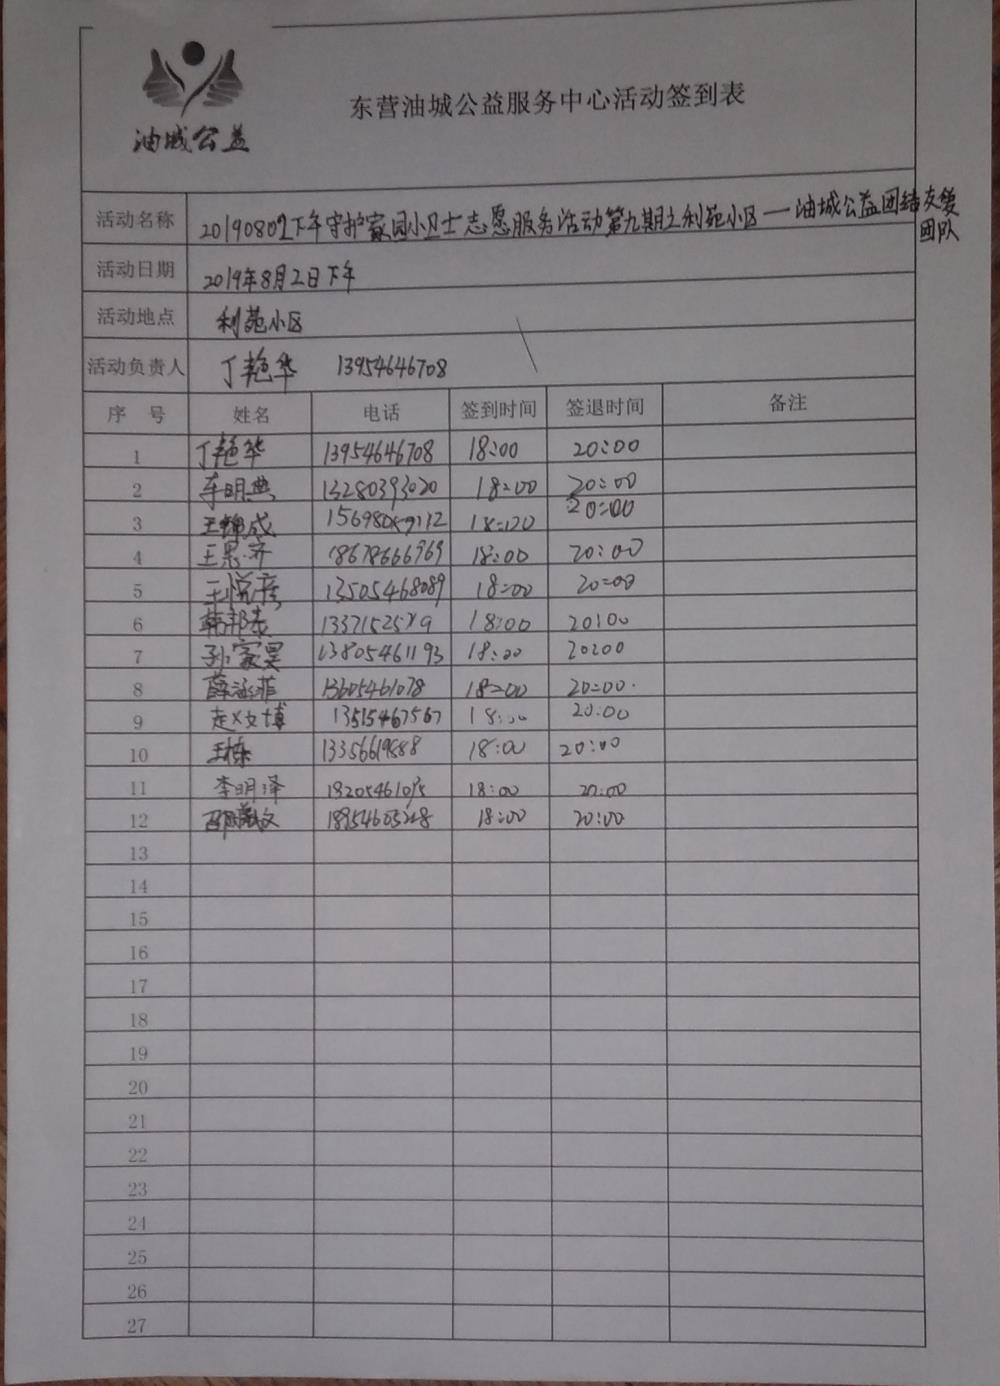 油城公益
东营油城公益服务中心活动签到表
活动名称 20190802下午守护家园小卫士志愿服务活动第九期之利苑小区一油城公益团结友爱
团队
活动日期 2019年8月2日下午
活动地点 利苑小区
活动负责人 丁艳华 13954646708
序 号 姓名 电话 签到时间 签退时间 备注
1 丁艳华 13954646708 18:00 20:00
2 李明典 13280393020 18:00 20:00
3 王锦成 18:00 20:00
4 王思齐 18678666969 18:00 20:00
5 王悦彦 13505468089 18:00 20:00
6 18:00 20:00
7 孙家昊 13805461193 18:00 20:00
8 薛涵菲 13605461078 18:00 20:00
9 赵文博 13515467567 18:00 20:00
10 王栋 13356619888 18:00 20:00
11 李明泽 18:00 20:00
12 18:00 20:00
13
14
15
16
17
18
19
20
21
22
23
24
25
26
27